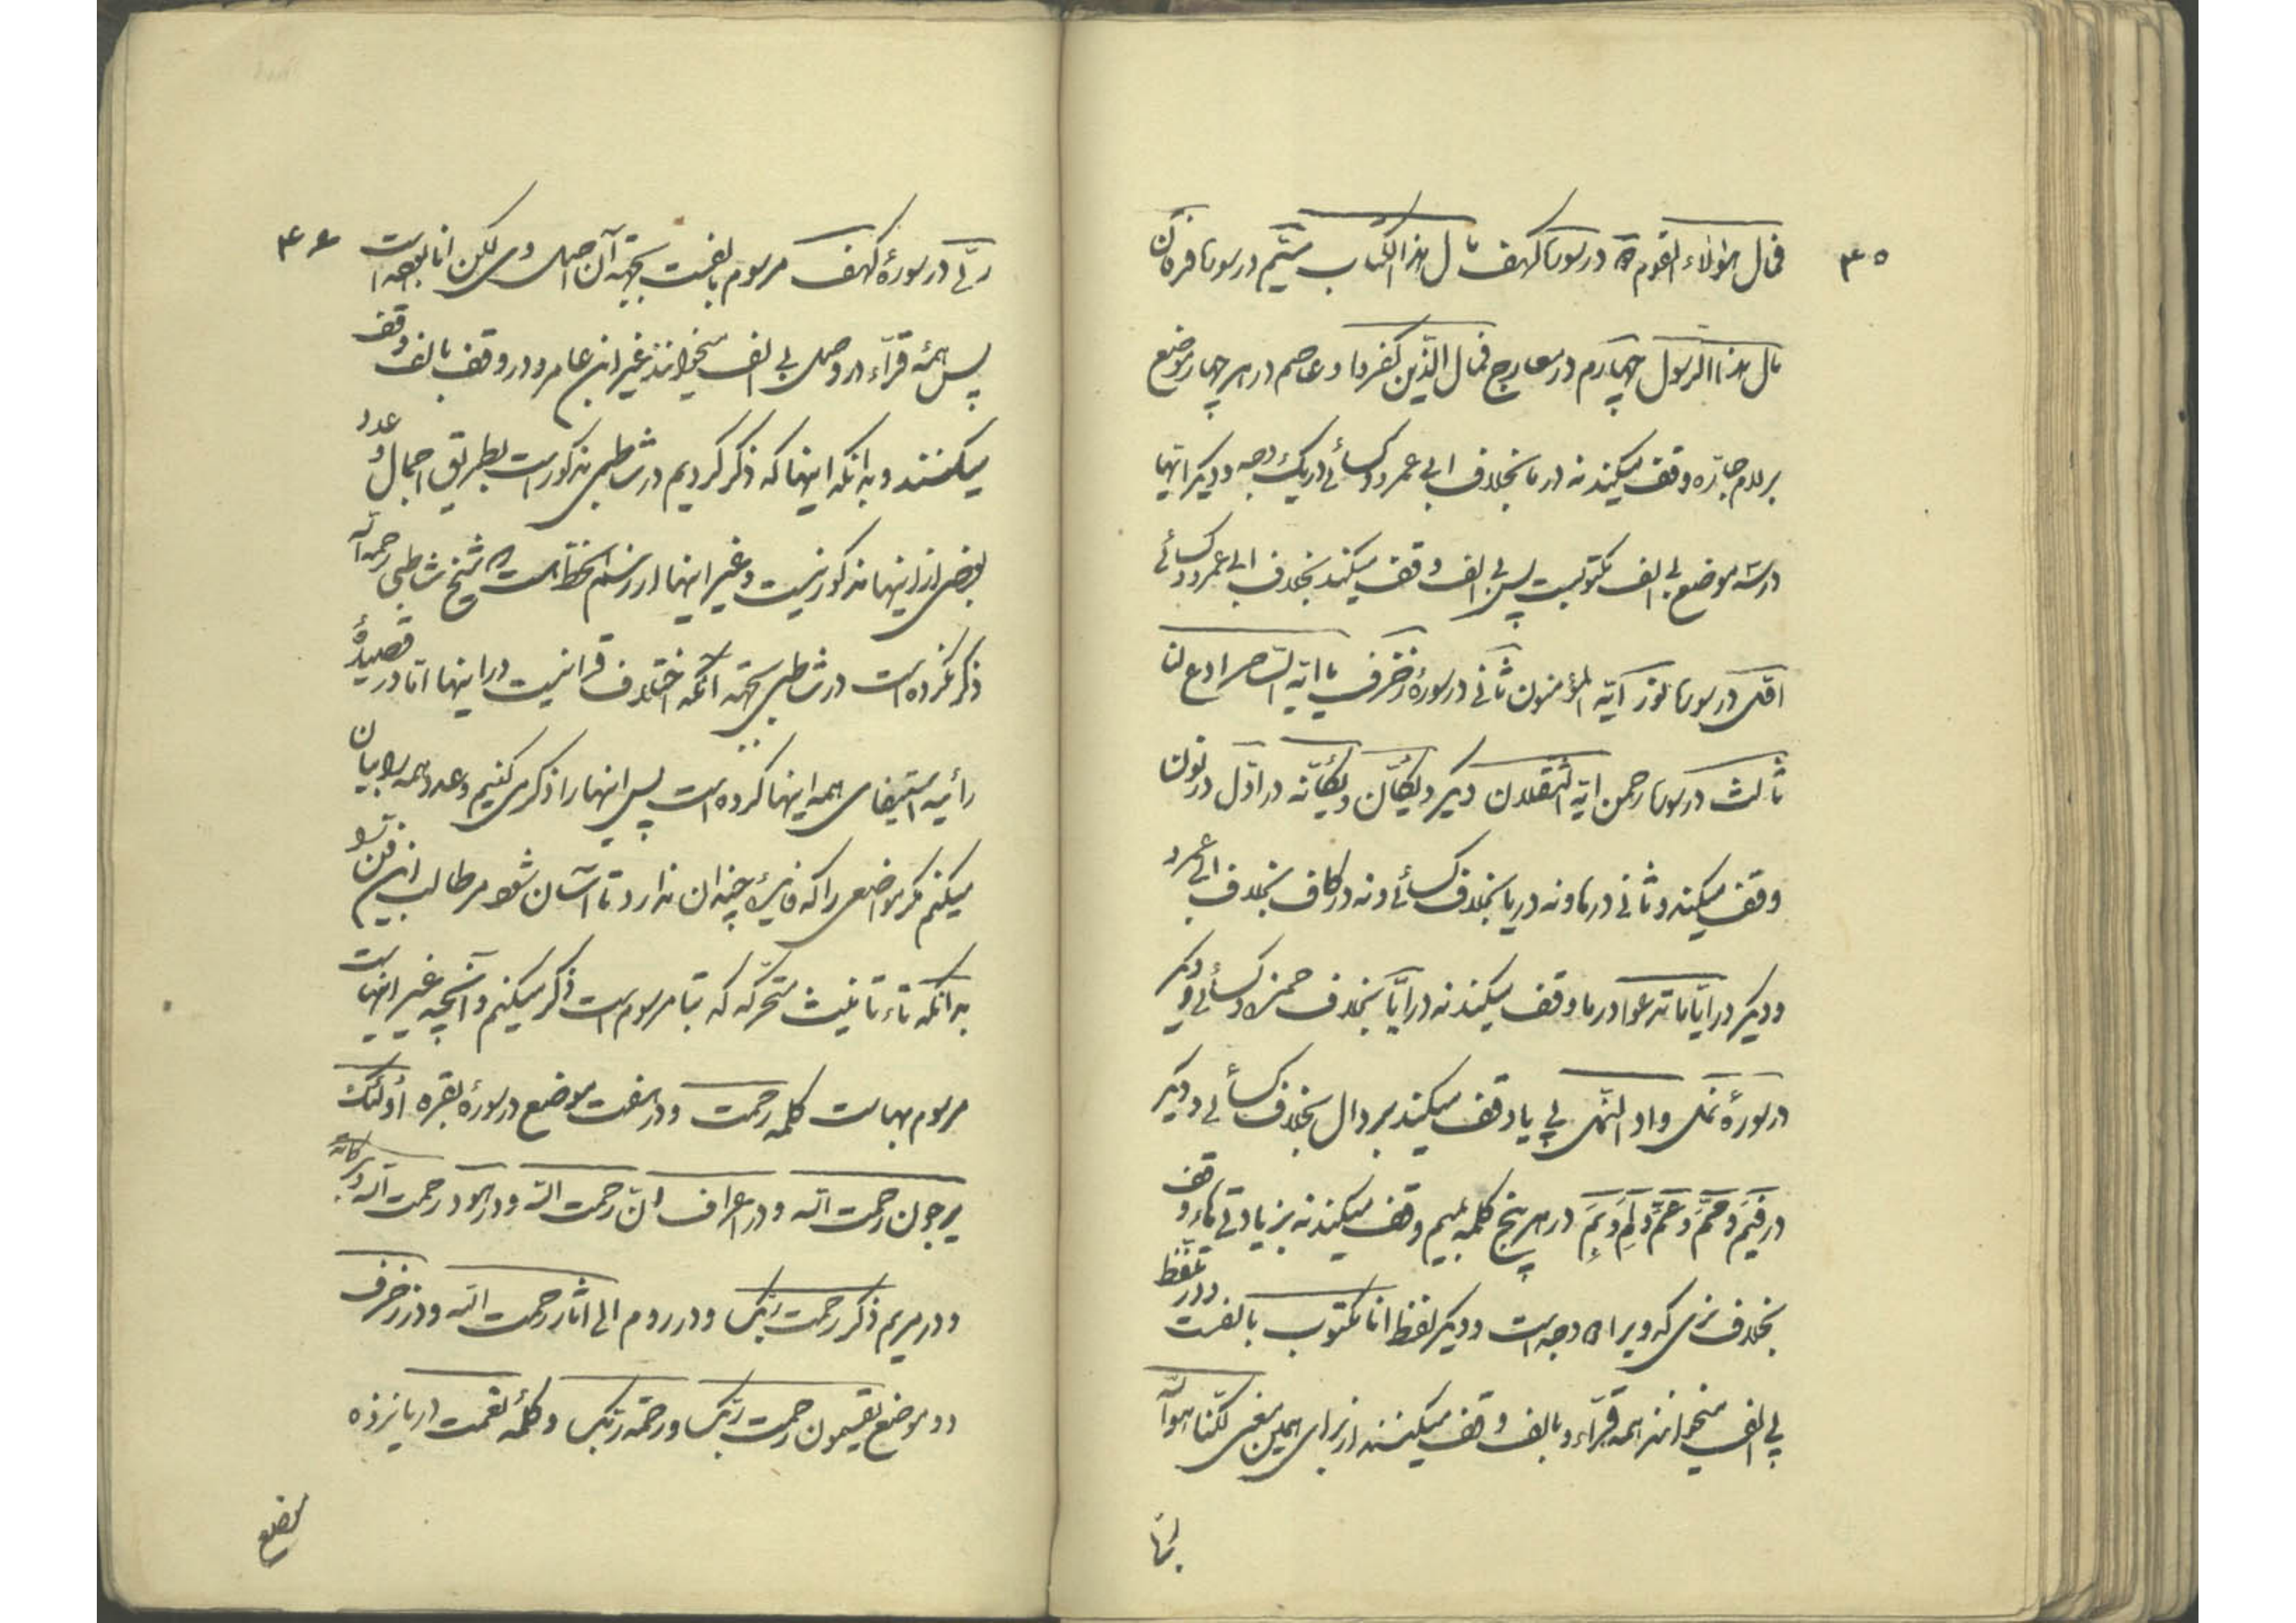 ۳۵
فمال هؤلاء القوم در سورهٔ کهف مال هذا الکتاب سیّم در سورهٔ فرقان
مال هذا الرسول چهارم در معارج فمال الذین کفروا و عاصم در هر چهار موضع
بر لام جارّه وقف میکند نه در ما بخلاف ابی عمرو و کسائی در یک وجه و دیگر ایها
در سه موضع بی الف مکتوبست پس بی الف وقف میکند بخلاف ابی عمرو و کسائی
اوّل در سورهٔ نور ایّه المؤمنون ثانی در سورهٔ زخرف یا ایّه الساحر ادع لنا
ثالث در سورهٔ رحمن ایّه الثقلان دیگر ویکأنّ ویکأنّه در اوّل در نون
وقف میکند و ثانی در ها و نه در یا بخلاف کسائی و نه در کاف بخلاف ابی عمرو
و دیگر در ایّاما تدعوا در ما وقف میکند نه در ایّا بخلاف حمزه و کسائی و دیگر
در سورهٔ نمل واد النّمل بی یا وقف میکند بر دال بخلاف کسائی و دیگر
در فیم و ممّ و عمّ و لم و بم در هر پنج کلمه بمیم وقف میکند نه بزیادتی هاء وقف
بخلاف بزی که ویرا دو وجه است و دیگر لفظ انا مکتوب بالفست و در تلفّظ
بی الف میخوانند همه قرّاء و بالف وقف میکنند از برای همین معنی لکنّا هو الله
ربّی در سورهٔ کهف مرسوم بالفست بجهة آن اصل وی لکن انا بوده است
۳۶
پس همهٔ قرّاء در وصل بی الف میخوانند غیر ابن عامر و در وقف بالف وقف
میکنند و بدانکه اینها که ذکر کردیم در شاطبی مذکور است بطریق اجمال و عدد
بعضی از اینها مذکور نیست و غیر اینها در رسم الخطّ است که شیخ شاطبی رحمه الله
ذکر نکرده است در شاطبی بجهة آنکه اختلاف قرا نیست در اینها امّا در قصیدهٔ
رائیه استیفای همه اینها کرده است پس اینها را ذکر می کنیم و عدد همه را بیان
میکنم مگر مواضعی را که فایدهٔ چندان ندارد تا آسان شود مر طالب این فن را
بدانکه تاء تانیث متحرّکه که بتا مرسوم است ذکر میکنیم و آنچه غیر اینهاست
مرسوم بهاست کلمه رحمت و در هفت موضع در سورهٔ بقره أولئک
یرجون رحمت الله و در اعراف انّ رحمت الله و در هود رحمت الله و برکاته
و در مریم ذکر رحمت ربّک و در روم الی اثار رحمت الله و در زخرف
دو موضع یقسمون رحمت ربّک و رحمة ربّک و کلمهٔ نعمت در یازده
موضع